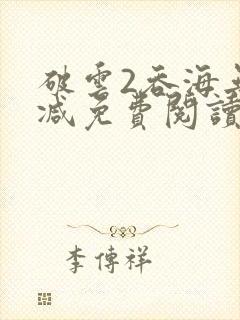 破雲2吞海無
減免費閱讀
李傳祥